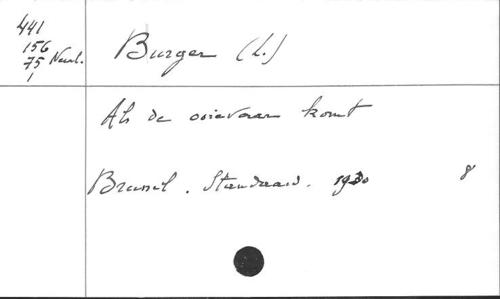 441
156
75 Neerl.
1
Burger (L.)
Als de ooievaar komt
Brussel. Standaard. 1930 8